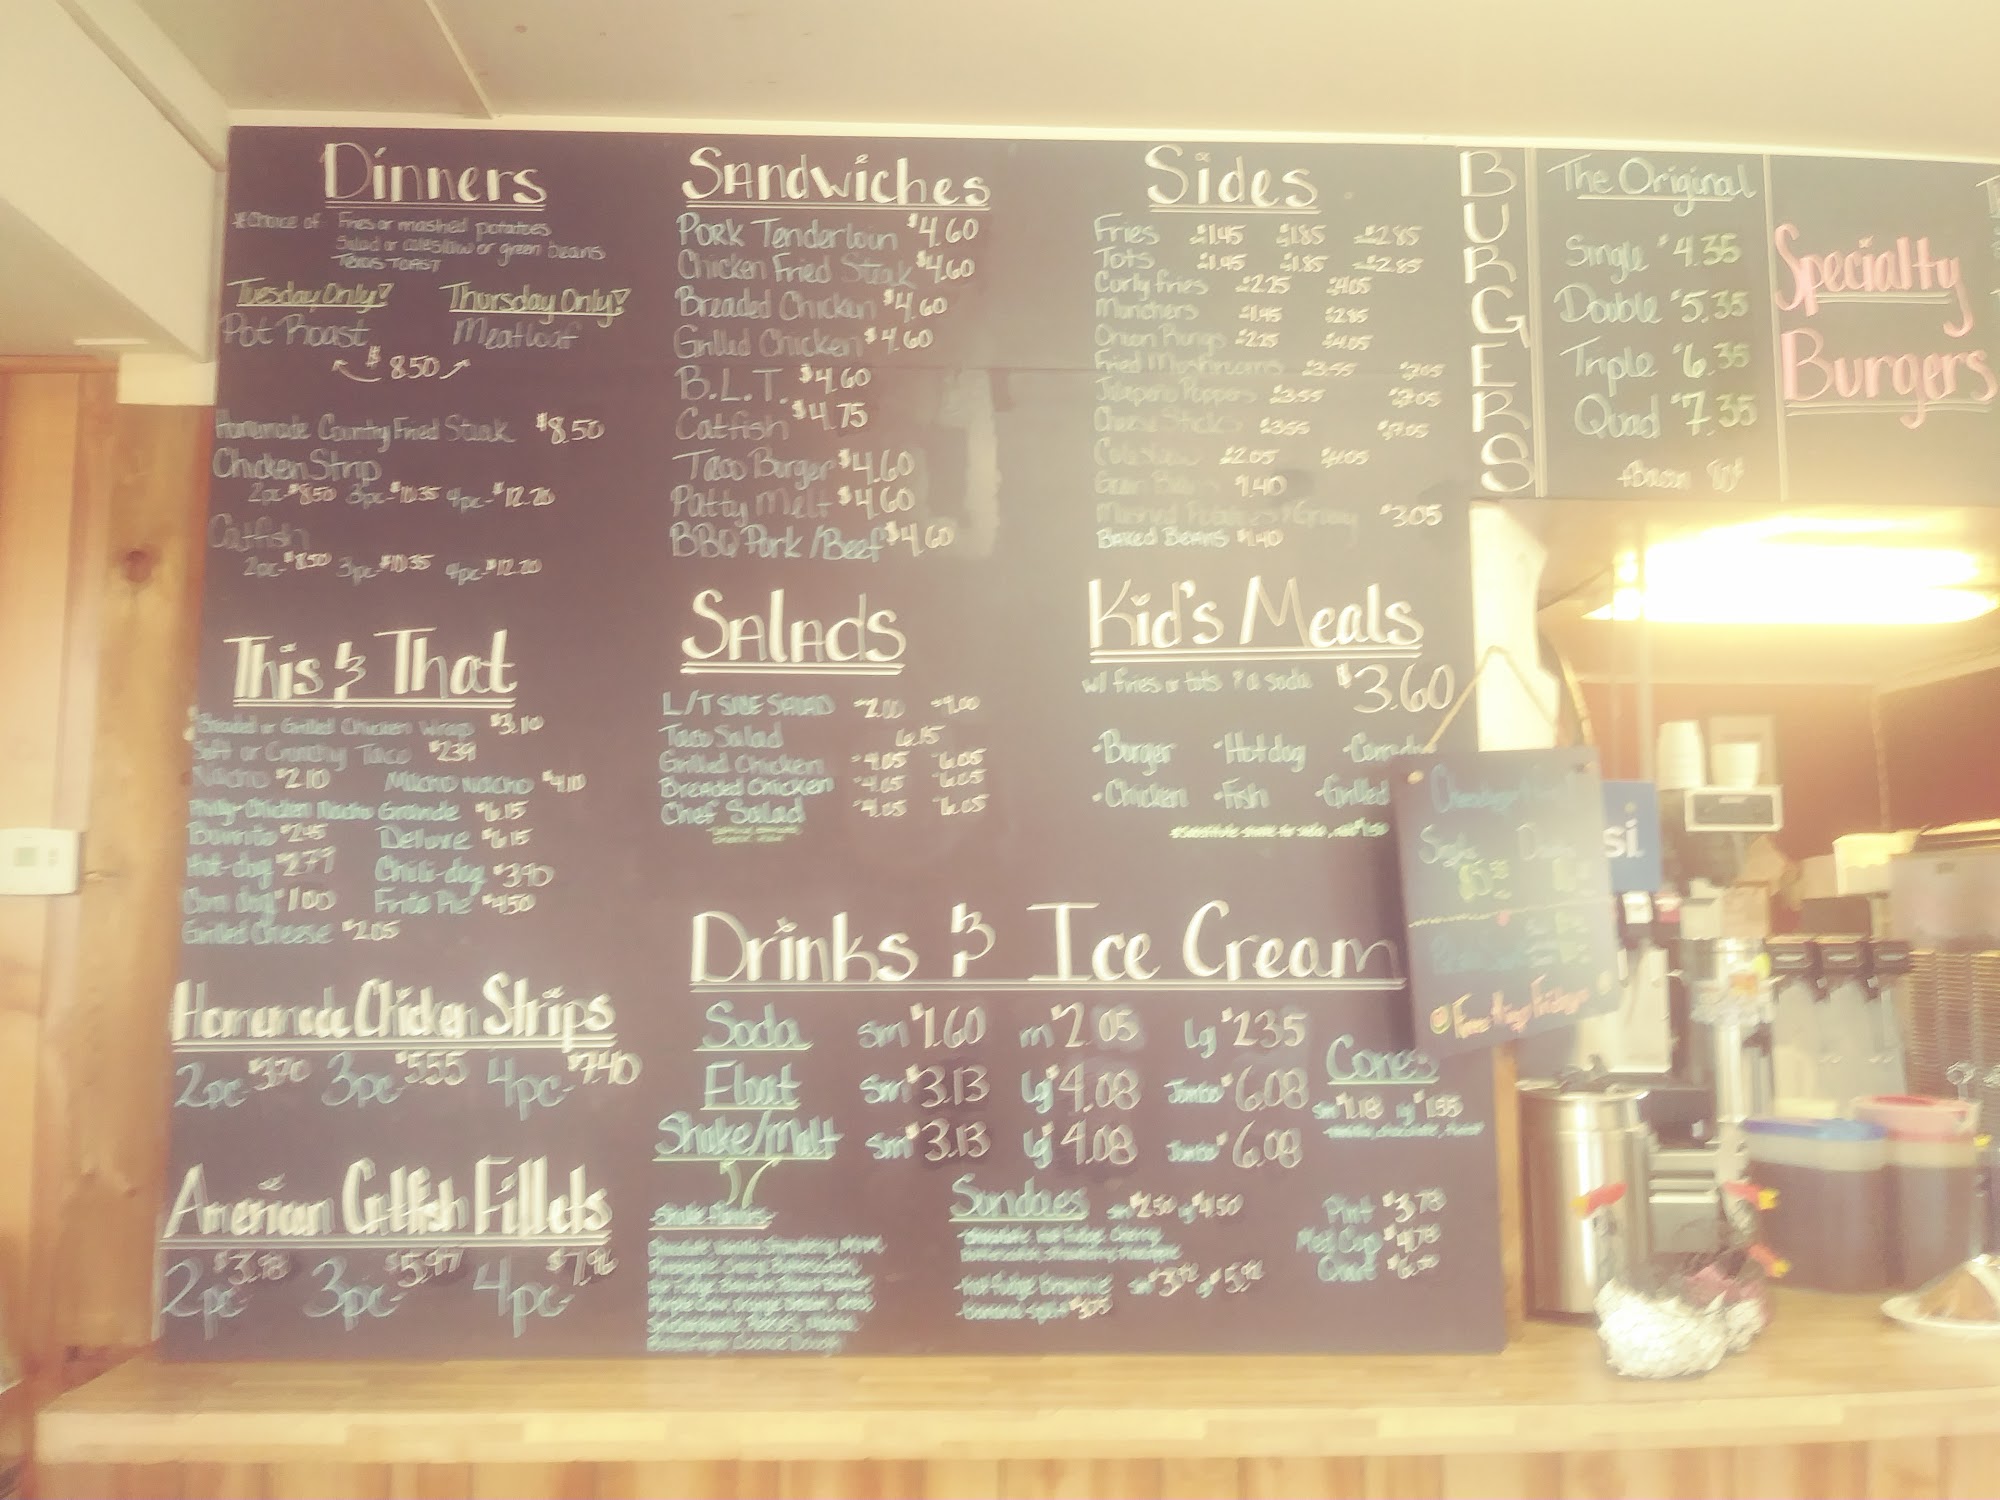 Dinners
*Choice of Fries or mashed potatoes
Salad or coleslaw or green beans
Texas Toast
Tuesday Only! Thursday Only!
Pot Roast Meatloaf
$8.50
Homemade Country Fried Steak $8.50
Chicken Strip
2pc-$8.50 3pc-$10.35 4pc-$12.20
Catfish
2pc-$8.50 3pc-$10.35 4pc-$12.20
This & That
Breaded or Grilled Chicken Wrap $3.10
Soft or Crunchy Taco $2.39
Nacho $2.10 Macho Nacho $4.10
Philly-Chicken Nacho Grande $6.15
Burrito $2.45 Deluxe $6.15
Hot-dog $2.79 Chili-dog $3.90
Corn dog $1.00 Frito Pie $4.50
Grilled Cheese $2.05
Homemade Chicken Strips
2pc-$3.70 3pc-$5.55 4pc-$7.40
American Catfish Fillets
2pc-$3.98 3pc-$5.97 4pc-$7.96
Sandwiches
Pork Tenderloin $4.60
Chicken Fried Steak $4.60
Breaded Chicken $4.60
Grilled Chicken $4.60
B.L.T. $4.60
Catfish $4.75
Taco Burger $4.60
Patty Melt $4.60
BBQ Pork/Beef $4.60
Salads
L/T Side Salad
Taco Salad 6.15
Grilled Chicken $4.05 $6.05
Breaded Chicken $4.05 $6.05
Chef Salad $4.05 $6.05
Sides
Fries $1.45 $1.85 $2.85
Tots $1.45 $1.85 $2.85
Curly Fries $2.25 $4.05
Munchers $1.45 $2.85
Onion Rings $2.25 $4.05
Fried Mushrooms $3.55 $7.05
Jalapeno Poppers $3.55 $7.05
Cheese Sticks $3.55 $7.05
Cole Slaw $2.05
Green Beans 1.40
Mashed Potatoes & Gravy $3.05
Baked Beans $1.40
Kid's Meals
w/ fries or tots & a soda $3.60
·Burger ·Hotdog
·Chicken ·Fish ·Grilled
Drinks & Ice Cream
Soda Sm $1.60 m $2.05 Lg $2.35
Float Sm $3.13 Lg $4.08 Jumbo $6.08
Shake/Malt Sm $3.13 Lg $4.08 Jumbo $6.08
Cones
Sm $1.18 Lg $1.55
Shake flavors-
Chocolate, Vanilla, Strawberry,
Cookie Dough
Sundaes Sm $2.50 Lg $4.50
-Chocolate, Hot Fudge, Cherry,
Butterscotch, Strawberry, Pineapple
-Hot Fudge Brownie
-Banana Split
Pint $3.78
Quart
BURGERS
The Original
Single $4.35
Double $5.35
Triple $6.35
Quad $7.35
+Bacon
Specialty
Burgers
si